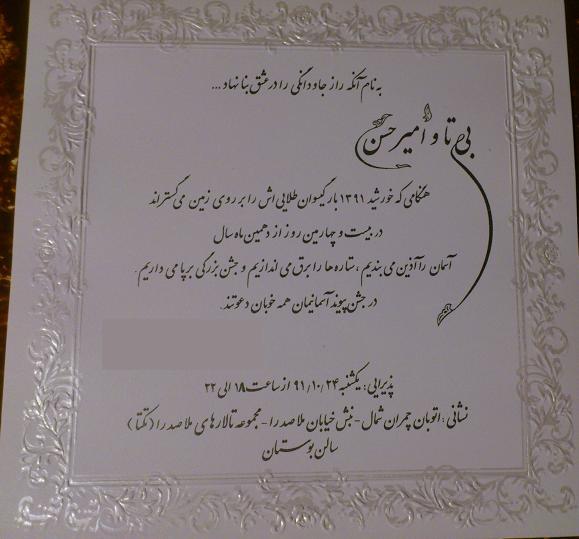 به نام آنکه راز جاودانگی را در عشق بنا نهاد ...
بی تا و امیرحسن
هنگامی که خورشید ۱۳۹۱ بار گیسوان طلایی اش را بر روی زمین می گستراند
در بیست و چهارمین روز از دهمین ماه سال
آسمان را آذین می بندیم ، ستاره ها را برق می اندازیم و جشن بزرگی برپا می داریم .
در جشن پیوند آسمانیمان همه خوبان دعوتند .
پذیرایی : یکشنبه ۹۱/۱۰/۲۴ از ساعت ۱۸ الی ۲۲
نشانی : اتوبان چمران شمال - نبش خیابان ملاصدرا - مجموعه تالارهای ملاصدرا ( تکتا )
سالن بوستان